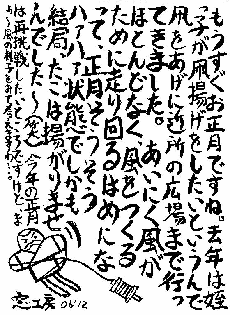 もうすぐお正月ですね。去年は姪
っ子が凧揚げをしたいというんで
凧をあげに近所の広場まで行っ
てきました。あいにく風が
ほとんどなく風をつくる
ために走り回るはめにな
って、正月そうそう
ハァハァ状態でしかも
結局、たこは揚がりませ
んでした〜(笑)今年の正月
は再挑戦したいところですけどまぁ
あ〜風の様子をみて考えますわ…。
窓工房 06'12